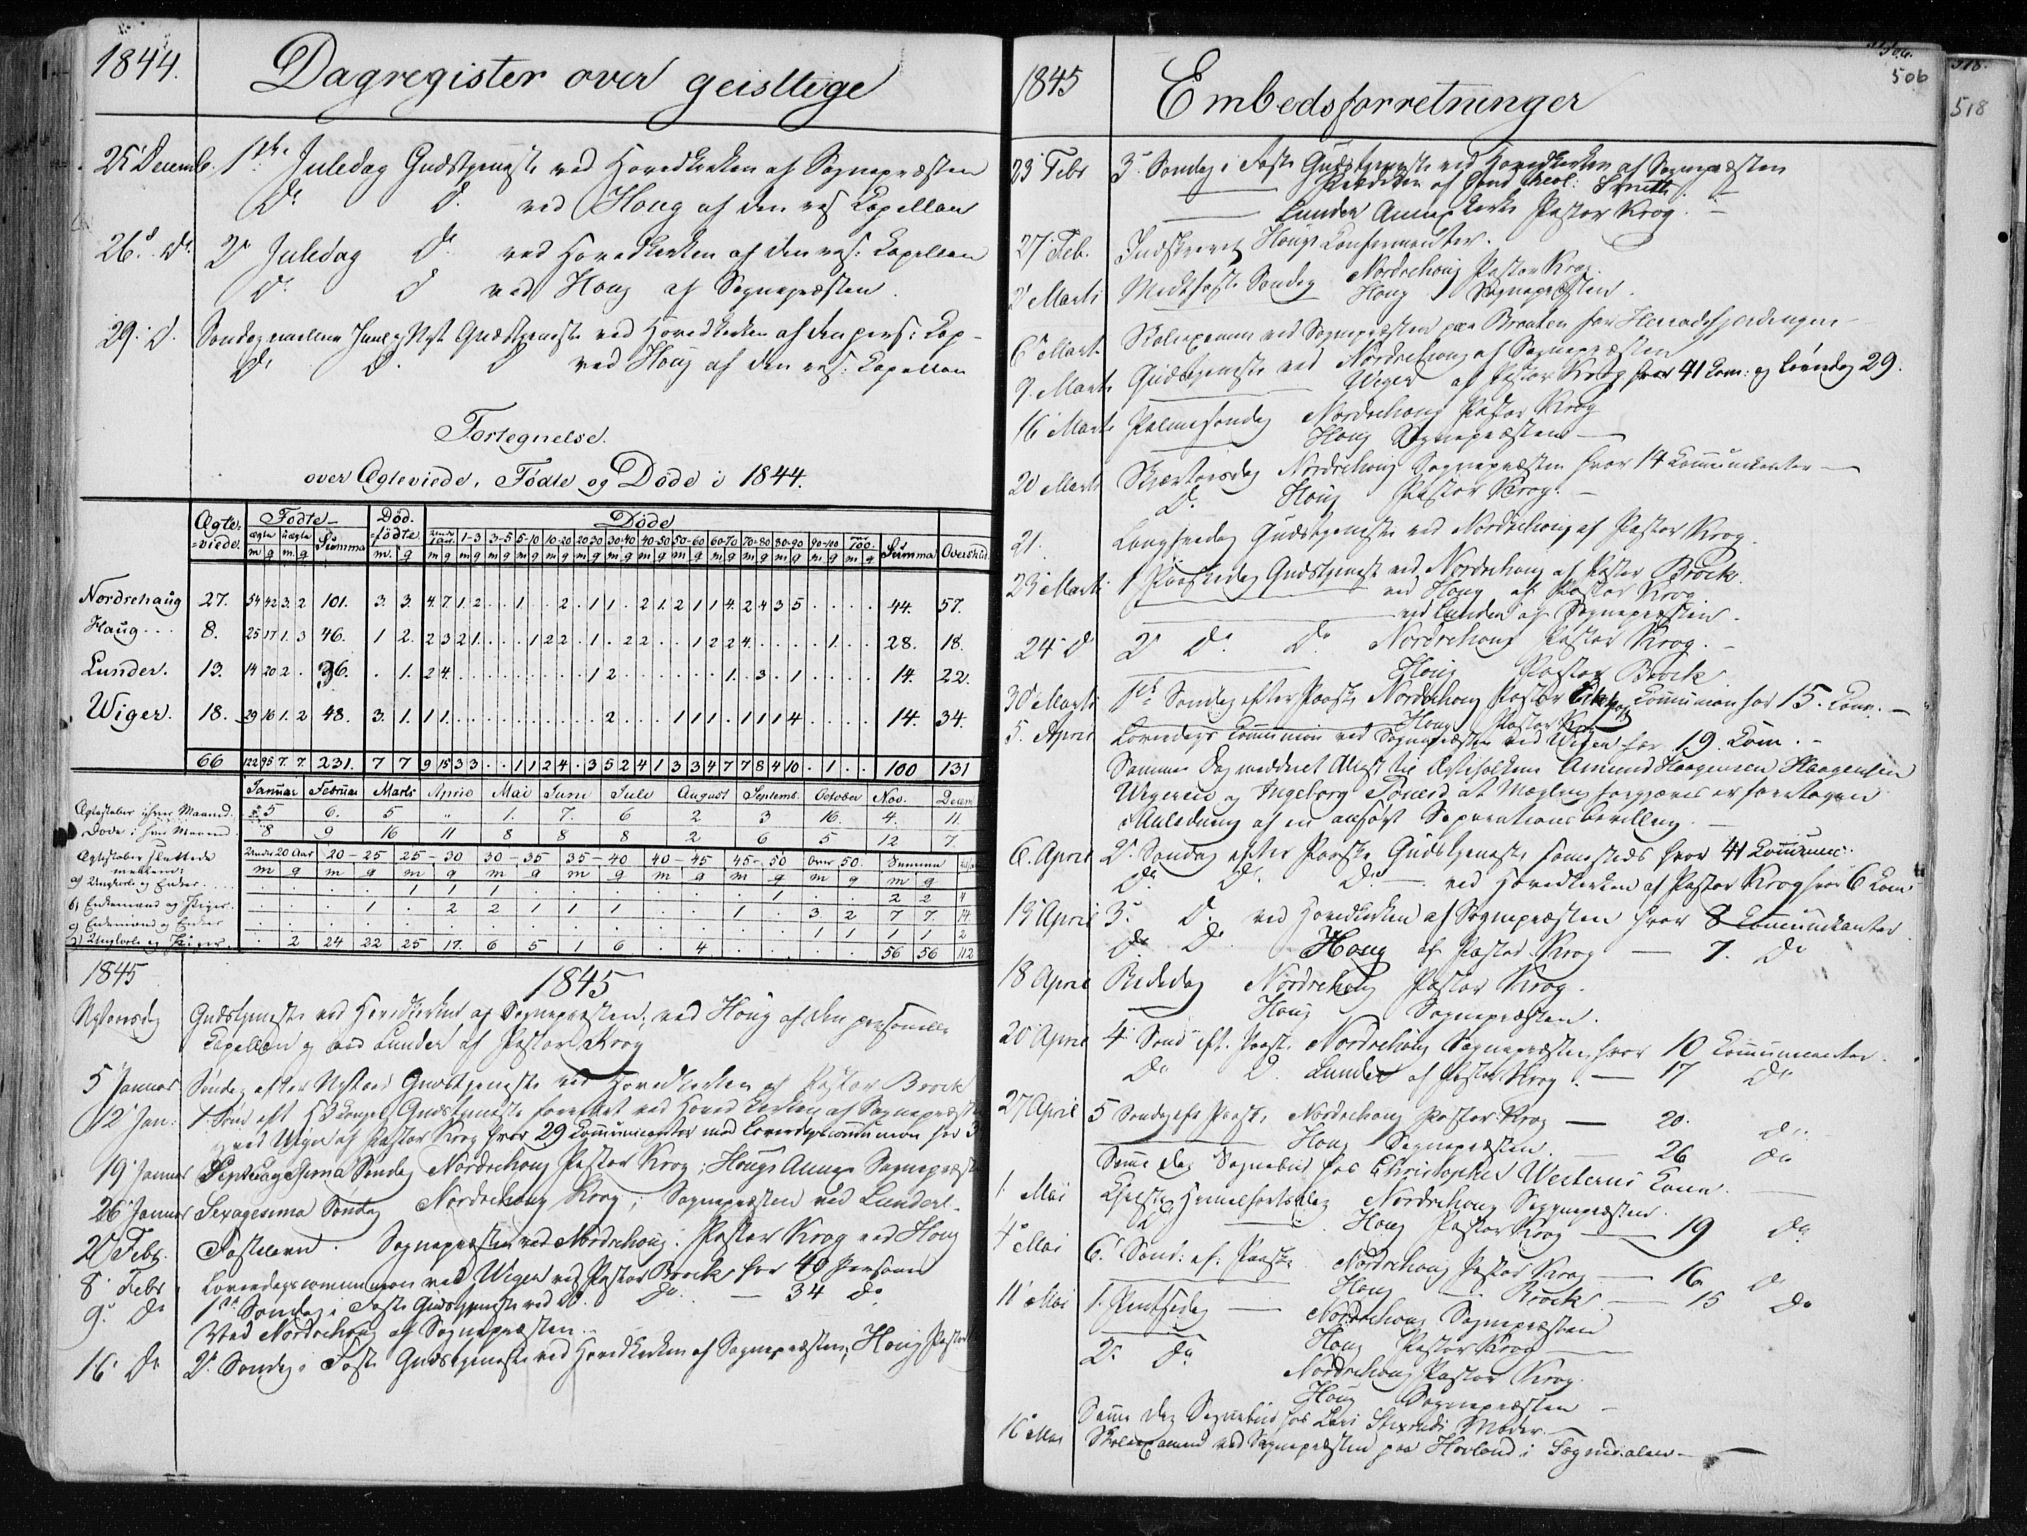 1844.
Dagregister over geistlige
25 Decemb. 1ste Juledag Gudstjeneste ved Hovedkirken af Sognepræsten
Do D. ved Houg af den res Capellan
26d Do. 2n Juledag Do ved Hovedkirken af den res: Capellan
Do D ved Houg af Sognepræsten.
29. D. Søndag mellem Juul og Nyt Gudstjeneste ved Hovedkirken af den pers: Cap-
Do D. D ved Houg af den res: Capellan
Fortegnelse
over Ægteviede, Fødte og Døde i 1844.
Ægte-viede. Fødte Død-fødte Døde
ægte uægte Summa 1-3 3-5 5-10 10-20 20-30 30-40 40-50 50-60 60-70 70-80 80-90 90-100 Summa Overskud
m g m g m g m g m g m g m g m g m g m g m g m g m g m g m g m g m g
Nordrehaug 27. 54 42 3. 2 101. 3. 3. 4. 7 1. 2 . . 1 . . 2 . 1 1 . 2 1. 2 1 1 4. 2 4 3 5 . . . . 44. 57.
Haug . . . 8. 25 17 1. 3 46. 1 2. 2 3 2 1. . . . 1 2 2 . 1. . 2 2 . . 1 2 2 4. . . . . 1. . . 28. 18.
Lunder. 13. 14 20 2 . 36. . 1. 2 4. . . . . . . . . . 1 2 . . . . . . . 1. . 3. . 1 . . . . 14. 22.
Wiger. 18. 29 16 1. 2 48. 3. 1. 1 1. . . . . . . . . . . 2 . . . 1 1 1 . 1 1 1 4 . . . . 14. 34.
66 122 95 7. 7. 231. 7 7 9 15 3 3 . . 1 1 2 4 . 3 5 2 4 1 3 3 4 7 7 8 4 10 . 1 . . 100 131
Januar Februar Marts April Mai Juni Juli August Septemb. October Nov. Decem
Ægteskaber i hver Maaned. 5 6. 5 " 1. 7. 6 2 3 16. 4. 11
Døde i hver Maaned 8 9 16 11 8 8 8 2 6 5 12 7
Ægteskaber sluttede mellem: Under 20 Aar 20-25 25-30 30-35 35-40 40-45 45-50 Over 50. Summa
m g m g m g m g m g m g m g m g m g
a) Ungkarle og Enker . . . . . . . 1 1 1 . . . . . 1 . . 2 2 4
b) Enkemænd og Piger. . . . 1 . 2 2 1 1 1 . . 1 . 3 2 7 7. 14
c) Enkemænd og Enker . . . . . . . . . . . . . . 1 1 1 1 2
d) Ungkarle og Piger. . 2 24 22 25 17. 6 5 1 6 . 4 . . . . 56 56 112
1845 1845
Nytaarsdag Gudstjeneste ved Hovedkirken af Sognepræsten; ved Houg af den personelle
Capellan og ved Lunder af Pastor Krog
5 Januar Søndag efter Nytaar Gudstjeneste ved Hovedkirken af Pastor Brock
12' Jan: 1 Sønd eft. H3Konger Gudstjeneste forrettet ved Hoved Kirken af Sognepræst
ved Wiger af Pastor Krog hvor 29 Communicanter med Løverdagscommunion for 3
19' Januar Septuagesima Søndag Nordrehoug Pastor Krog; Hougs Annex Sognepræst
26' Januar Sexagesima Søndag Nordrehoug Krog; Sognepræsten ved Lunder.
2' Febr. Fastelavn. Sognepræsten ved Nordrehoug. Pastor Krog ved Houg
8' Febr Løverdagscommunion ved Wiger ved Pastor Brock for 40 Personer
9. Do 1ste Søndag i Faste Gudstjeneste ved D. Do. — 34 Do
Ved Nordrehoug af Sognepræsten.
16' Do 2' Søndag i Faste Gudstjeneste ved Hovedkirken af Sognepræsten; Houg Pastor
1845
Embedsforretninger
506
518
23 Febr 3' Søndag i Faste Gudstjeneste ved Hovedkirken af Sognepræsten
Prædiken af Cand theol: Smith.
Lunder Annex Kirke Pastor Krog.
27 Feb. Indskrevet Hougs Confirmanter.
2' Marts Midfaste Søndag Nordrehoug Pastor Krog.
Houg Sognepræsten.
6' Marts Skoleexamen ved Sognepræsten paa Braaten for Herredsfjerdingen
9. Marts Gudstjeneste ved Nordrehoug af Sognepræsten
Wiger af Pastor Krog hvor 41 Com: og Løverdag 29.
16 Marts Palmesøndag Nordrehoug Pastor Krog
Houg Sognepræsten —
20 Marts Skjærtorsdag Nordrehoug Sognepræsten hvor 14 Communicanter —
D. Houg Pastor Krog. —
21. Langfredag Gudstjeneste ved Nordrehoug af Pastor Krog.
23' Marts 1 Paaskedag Gudstjeneste ved Nordrehoug af Pastor Brock.
ved Houg af Pastor Krog
ved Lunder af Sognepræsten.
24 D 2' Do Do Nordrehoug Pastor Krog. —
Houg Pastor Brock
30' Marts 1ste Søndag efter Paaske Nordrehoug Pastor Communion for 15. Com. —
Houg Pastor Krog
5. April Løverdags Communion ved Sognepræsten ved Wiger for 19. Com. —
Samme Dag meddeelt Attest til Ægtefolkene Amund Haagensen Haagensen
Wigeren og Ingeborg at Mægling forgjæves er foretagen
i Anledning af en ansøgt Separationsbevilling —
6. April 2' Søndag efter Paaske Gudstjeneste samesteds hvor 41 Commun:
Do. D. Do. — ved Hovedkirken af Pastor Krog hvor 6 Com
13' April 3' D. ved Hovedkirken af Sognepræsten hvor 8 Communicanter
Do Do Houg af Pastor Krog — 7. Do
18 April Bededag Nordrehoug Pastor Krog.
Houg Sognepræsten.
20' April 4 Sønd eft. Paaske Nordrehoug Sognepræsten hvor 10 Communicanter.
Do D. Lunder af Pastor Krog. — 17 Do
27 April 5 Søndag eft Paaske Nordrehoug Pastor Krog — 20. Do.
Houg Sognepræsten. — 26 Do
Same Dag Sognebud hos Christopher Westerns Kone. —
1. Mai Christi Himmelfartsdag Nordrehoug Sognepræsten.
D Houg Pastor Krog — 19 Do
4' Mai 6' Sønd: ef: Paaske Nordrehoug Pastor Krog — 16. D
Houg — Brock. — 15 Do
11' Mai 1. Pintsedag — Nordrehoug Sognepræsten
Houg Pastor Krog —
2' Do Nordrehoug Pastor Krog.
Houg Sognepræsten —
Same Dag Sognebud hos Lars Moder. —
16' Mai Skoleexamen ved Sognepræsten paa Hovland i Sognedalen —